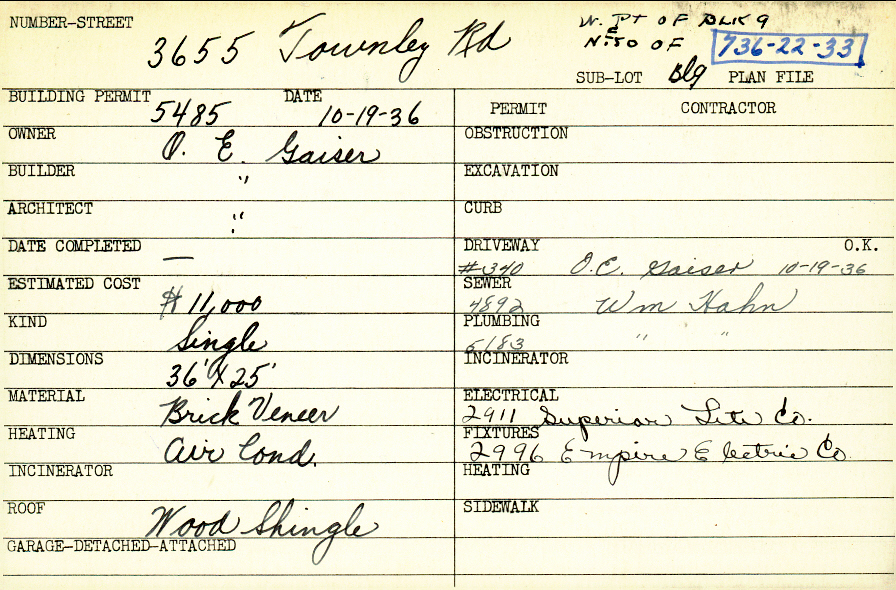 NUMBER-STREET
3655 Townley Rd
W. Pt OF BLK 9
&
N.50 OF
736-22-33
SUB-LOT Blg PLAN FILE
BUILDING PERMIT 5485 DATE 10-19-36
OWNER O. E. Gaiser
BUILDER "
ARCHITECT "
DATE COMPLETED —
ESTIMATED COST $11,000
KIND Single
DIMENSIONS 36' X 25'
MATERIAL Brick Veneer
HEATING Air Cond.
INCINERATOR
ROOF Wood Shingle
GARAGE-DETACHED-ATTACHED
PERMIT CONTRACTOR
OBSTRUCTION
EXCAVATION
CURB
DRIVEWAY O.K.
#340 O.E. Gaiser 10-19-36
SEWER
4892 Wm Hahn
PLUMBING
5183 " "
INCINERATOR
ELECTRICAL
2911 Superior Lite Co.
FIXTURES
2996 Empire Electric Co.
HEATING
SIDEWALK